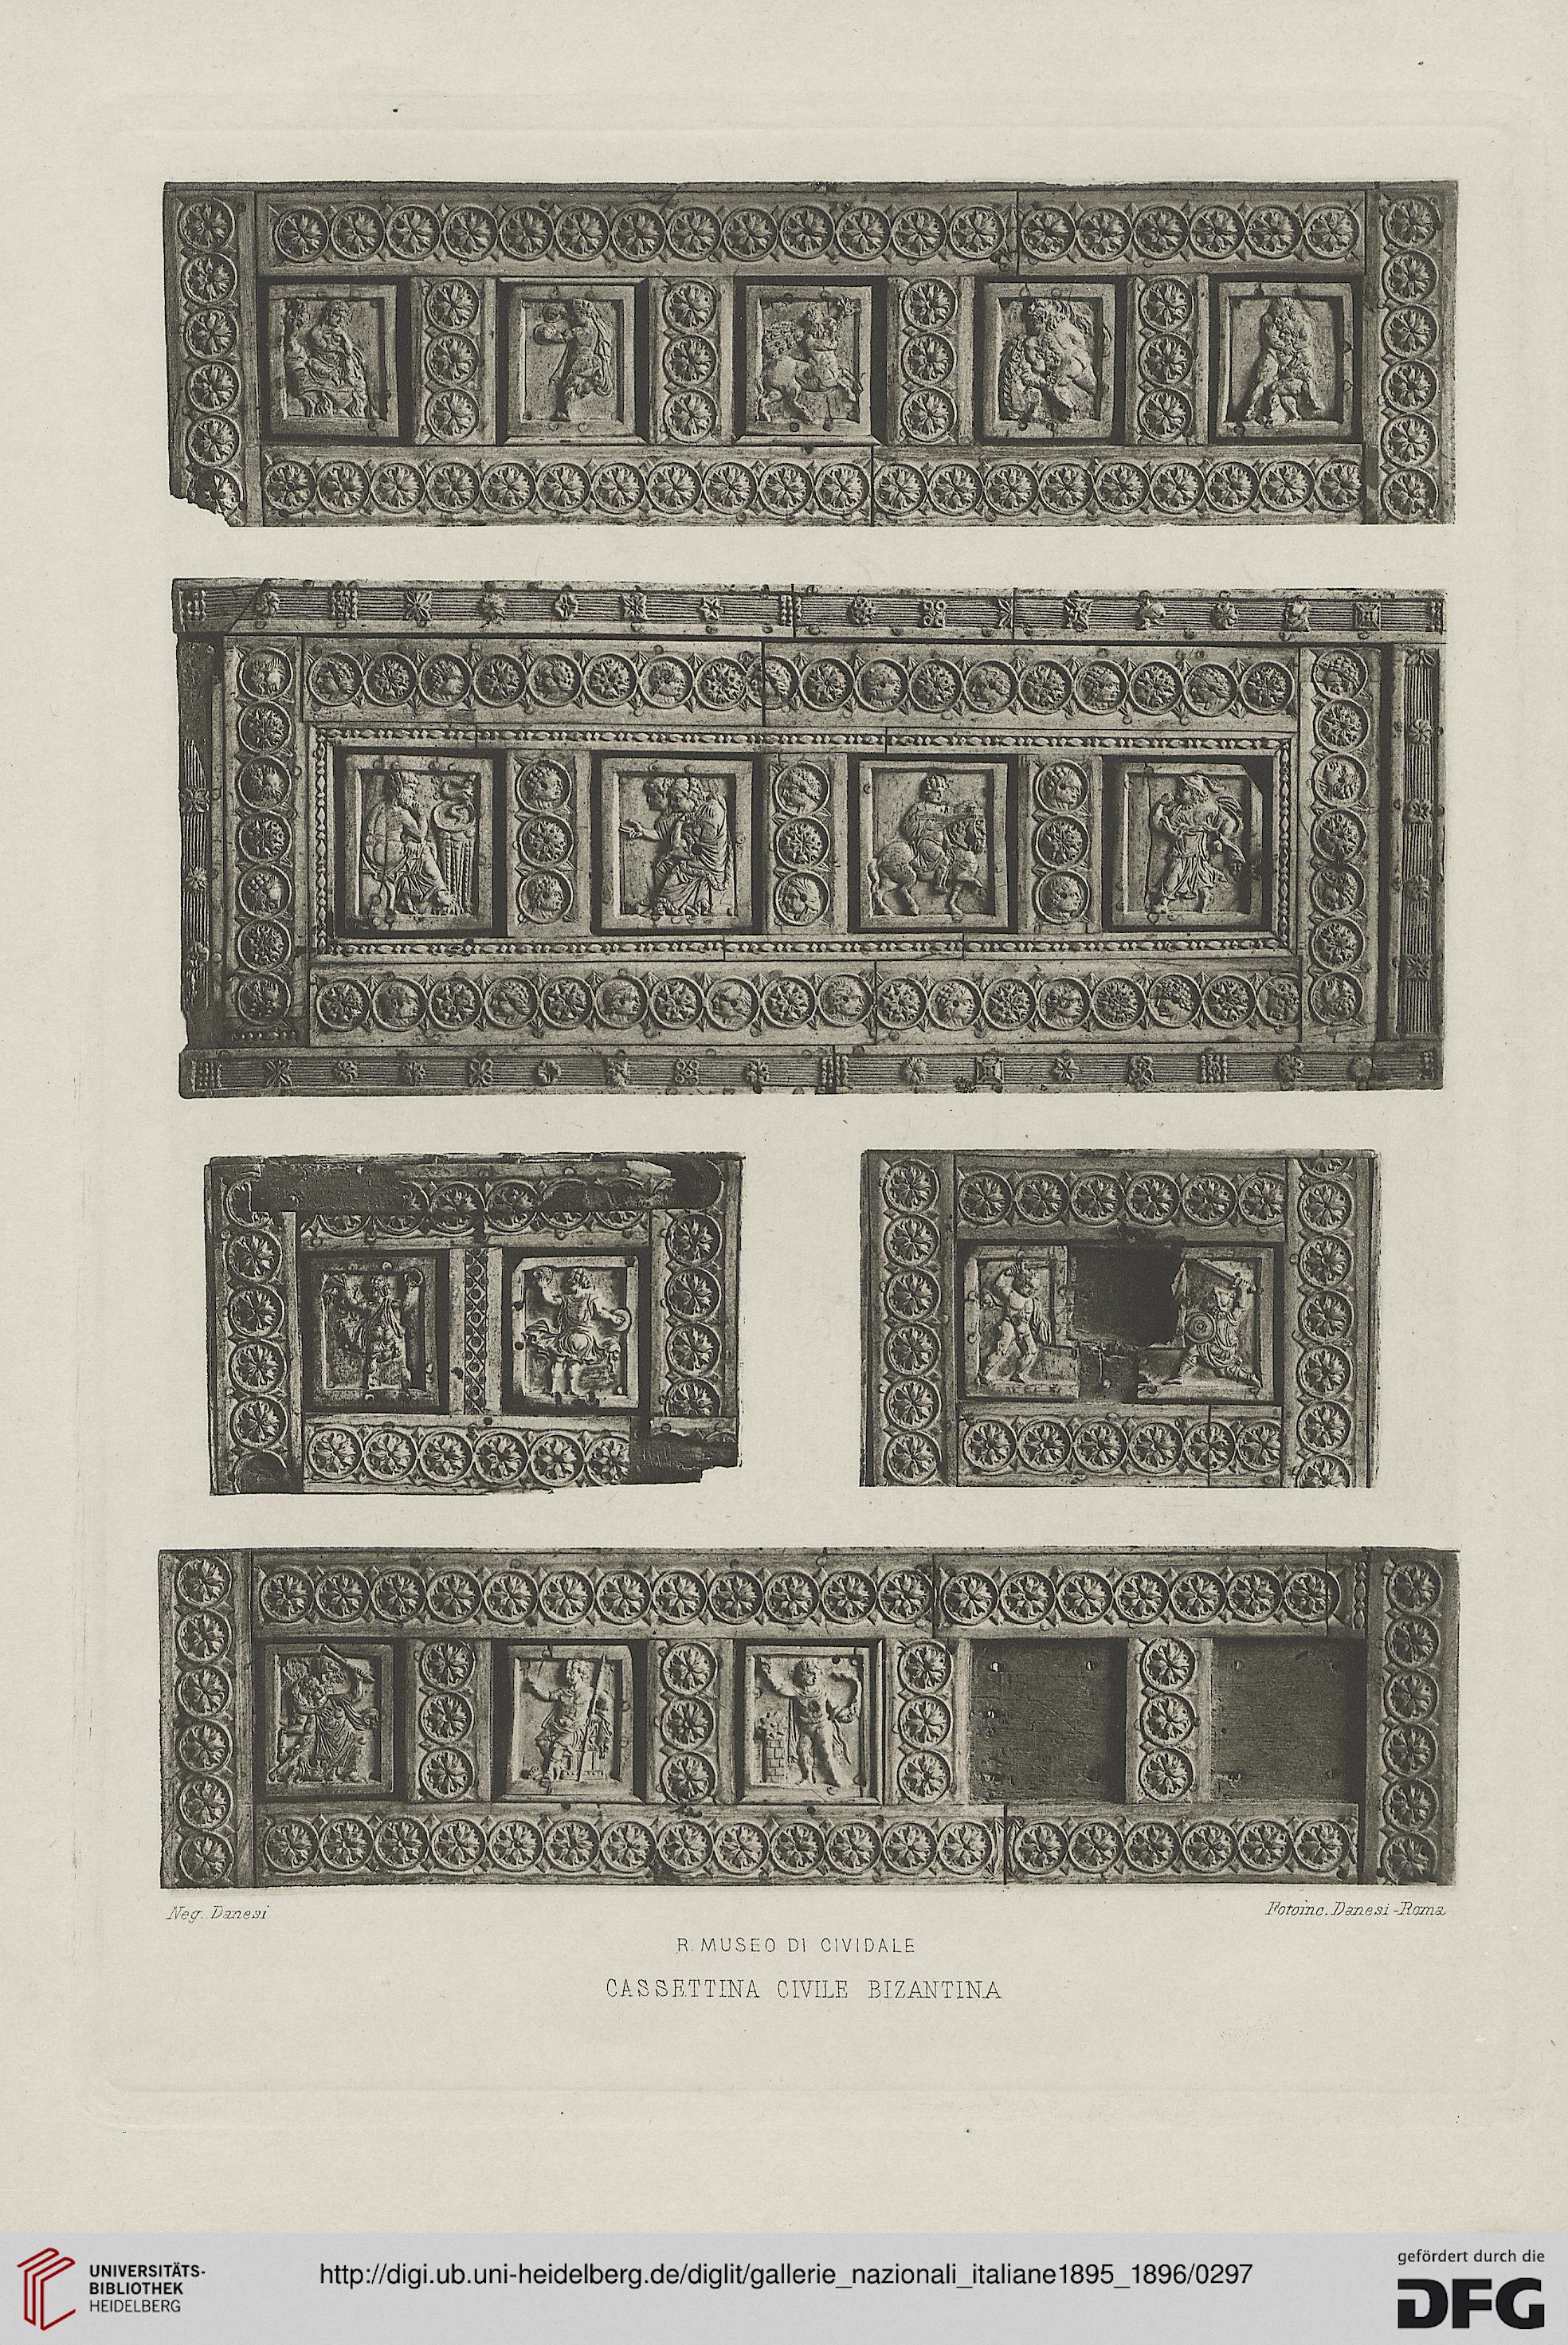 Neg. Danesi
Fotoinc. Danesi - Roma
R. MUSEO DI CIVIDALE
CASSETTINA CIVILE BIZANTINA
UNIVERSITÄTS-
BIBLIOTHEK
HEIDELBERG
http://digi.ub.uni-heidelberg.de/diglit/gallerie_nazionali_italiane1895_1896/0297
gefördert durch die
DFG